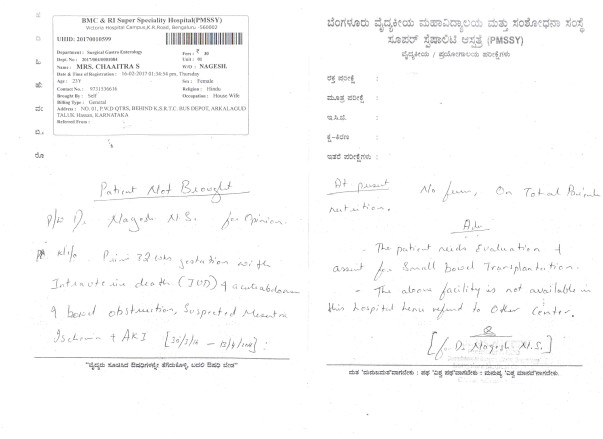 BMC & RI Super Speciality Hospital(PMSSY)
Victoria Hospital Campus,K.R.Road, Bengaluru, -560002
UHID: 20170010599
Department : Surgical Gastro Enterology
Fees : ₹ 40
Dep. No :
Unit :
Name : MRS. CHAAITRA S
W/O : NAGESH.
Date & Time of Registration : 16-02-2017 01:36:54 pm, Thursday
Age : 23Y
Sex : Female
Contact No. : 9731536616
Religion : Hindu
Brought By : Self
Occupation : House Wife
Billing Type : General
Address : NO. 01, P.W.D QTRS, BEHIND K.S.R.T.C. BUS DEPOT, ARKALAGUD
TALUK Hassan, KARNATAKA
Referred From :
Patient Not Brought
Nagesh N.S. for Opinion.
Primi 32 wks gestation with
Intrauterine death (IUD) & acute abdomen
bowel obstruction, Suspected
Ischemia + AKI
"ವೈದ್ಯರು ಸೂಚಿಸಿದ ಔಷಧಿಗಳನ್ನೇ ತೆಗೆದುಕೊಳ್ಳಿ, ಬದಲಿ ಔಷಧಿ ಬೇಡ"
ಬೆಂಗಳೂರು ವೈದ್ಯಕೀಯ ಮಹಾವಿದ್ಯಾಲಯ ಮತ್ತು ಸಂಶೋಧನಾ ಸಂಸ್ಥೆ
ಸೂಪರ್ ಸ್ಪೆಷಾಲಿಟಿ ಆಸ್ಪತ್ರೆ (PMSSY)
ವೈದ್ಯಕೀಯ / ಪ್ರಯೋಗಾಲಯ ಪರೀಕ್ಷೆಗಳು
ರಕ್ತ ಪರೀಕ್ಷೆ :
ಮೂತ್ರ ಪರೀಕ್ಷೆ :
ಇ.ಸಿ.ಜಿ. :
ಕ್ಷ-ಕಿರಣ :
ಇತರೆ ಪರೀಕ್ಷೆಗಳು :
At present No fever, On Total
nutrition.
Adv
- The patient needs Evaluation &
for Small bowel Transplantation.
- The above facility is not available in
this hospital hence refered to Other Center.
[for Dr Nagesh N.S.]